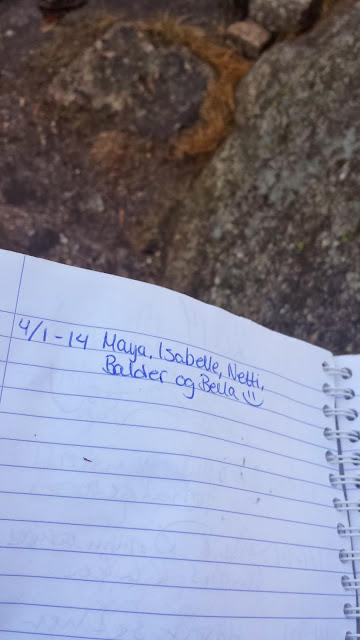 4/1-14 Maya, Isabelle, Netti,
Balder og Bella :)